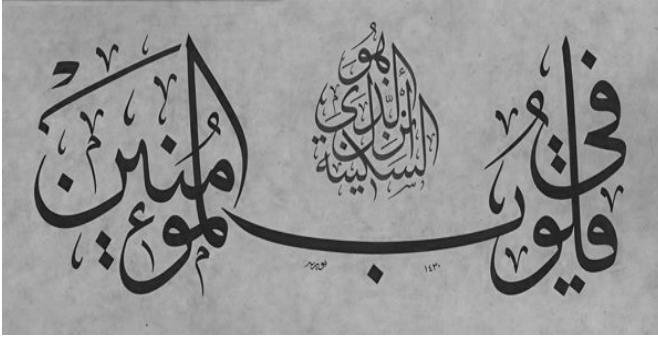 هُوَ الَّذِي أَنْزَلَ السَّكِينَةَ
فِي قُلُوبِ الْمُؤْمِنِينَ
١٤٣٠